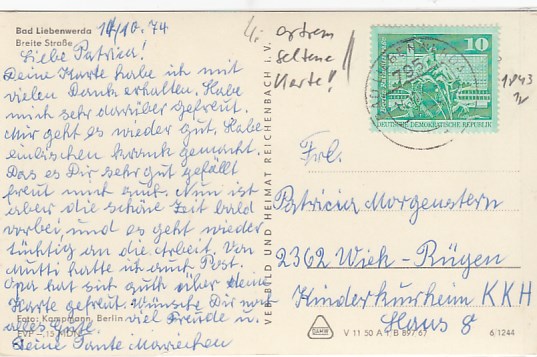 Bad Liebenwerda
Breite Straße
14/10. 74
Liebe Patricia!
Deine Karte habe ich mit
vielen Dank erhalten. Habe
mich sehr darüber gefreut.
Mir geht es wieder gut. Habe
einbischen krank gemacht.
Das es Dir sehr gut gefällt
freut mich auch. Nun ist
aber die schöne Zeit bald
vorbei, und es geht wieder
tüchtig an die Arbeit. Von
Mutti hatte ich auch Post.
Opa hat sich auch über deine
Karte gefreut. Wünsche Dir noch
alles Gute. viel Freude u.
Deine Tante Mariechen
Foto: Kampmann, Berlin
EVP –,15 MDN
VEB BILD UND HEIMAT REICHENBACH I. V.
extrem
seltene
Karte!
10
DEUTSCHE DEMOKRATISCHE REPUBLIK
795
1843
Frl.
Patricia Morgenstern
2362 Wiek-Rügen
Kinderkurheim KKH
Haus 8
V 11 50 A 1 B 897/67
6/1244